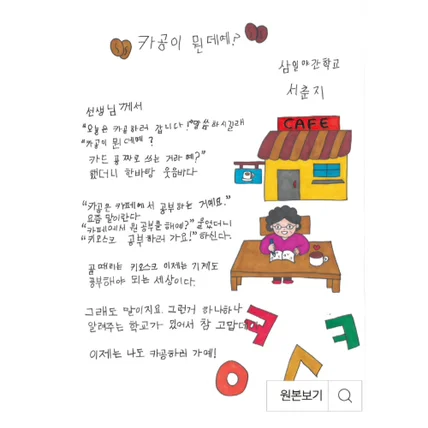 카공이 뭔데예?
삼일야간학교
서춘지
선생님께서
"오늘은 카공하러 갑니다!" 말씀하시길래
"카공이 뭔데예?
카드 공짜로 쓰는 거라예?"
했더니 한바탕 웃음바다
"카공은 카페에서 공부하는 거예요."
요즘 말이란다
"카페에서 뭔 공부를 해예?" 물었더니
"키오스크 공부하러 가요!" 하신다.
골 때리는 키오스크 이제는 기계도
공부해야 되는 세상이다.
그래도 말이지요. 그런거 하나하나
알려주는 학교가 있어서 참 고맙데이
이제는 나도 카공하러 가예!
CAFE
ㅋ
ㅋ
ㅇ
ㅅ
원본보기